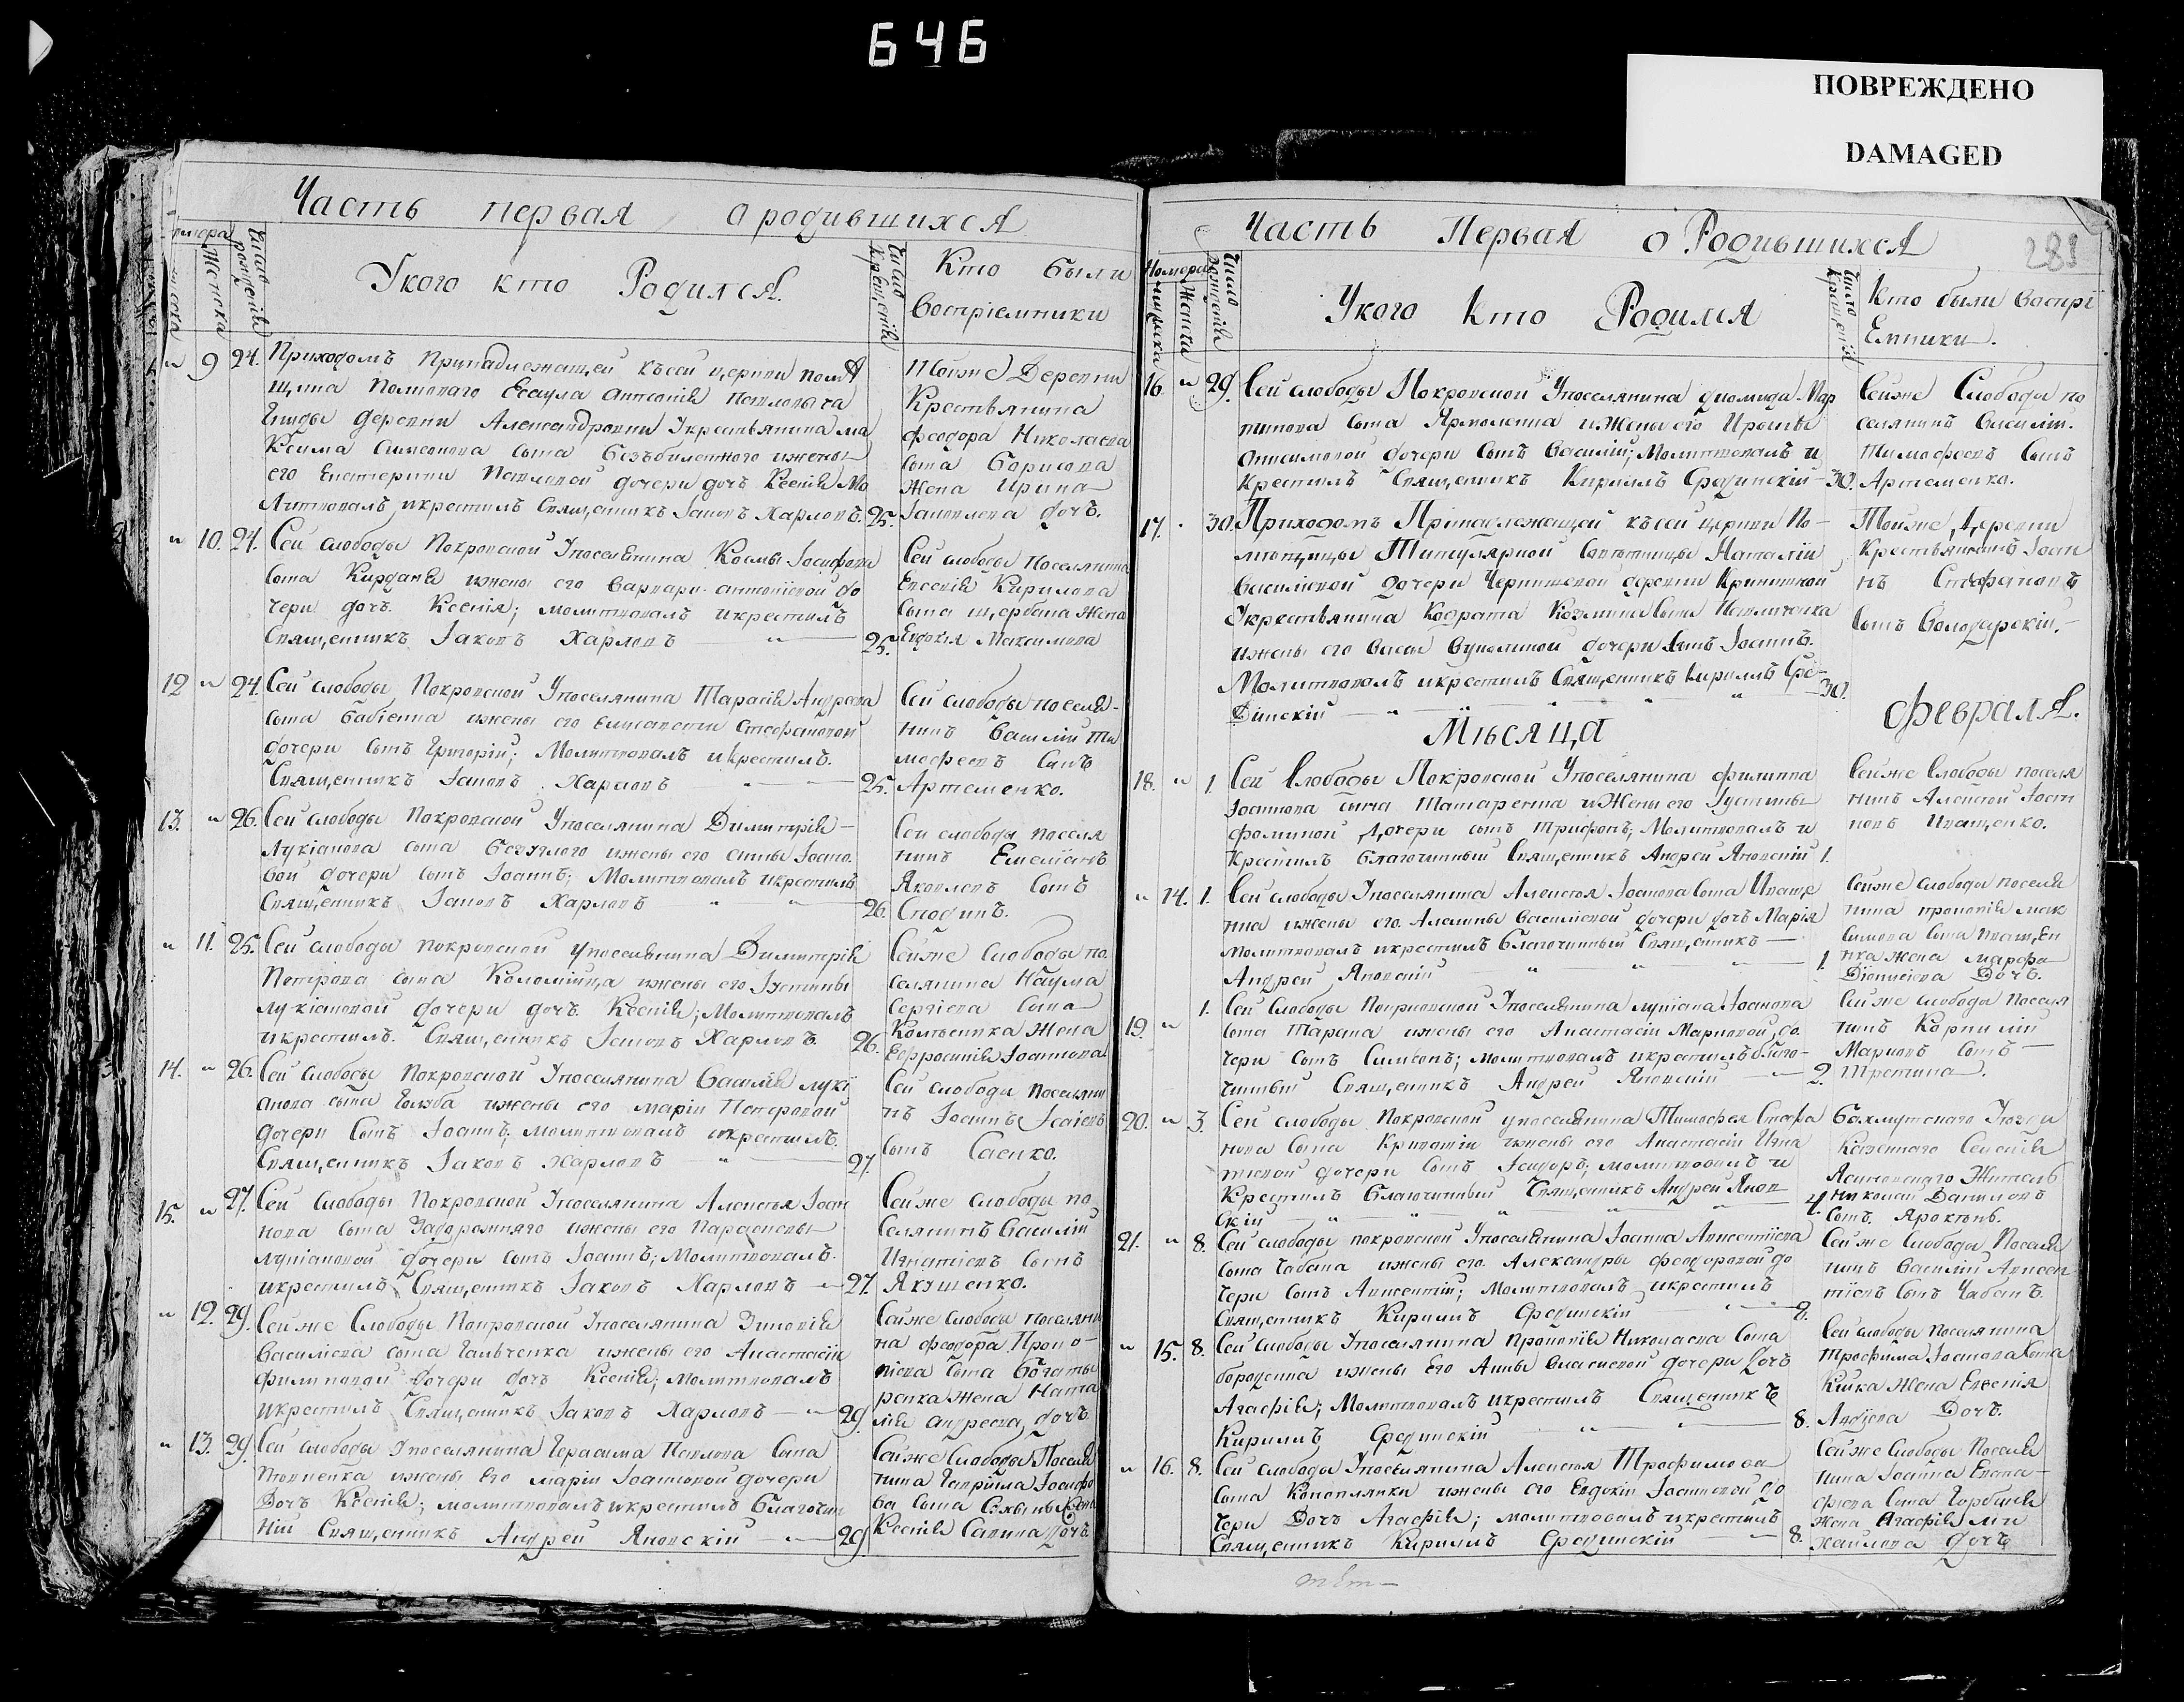 646
ПОВРЕЖДЕНО
DAMAGED
Часть первая о родившихся
Укого кто Родился.
Число Крещенія
Кто были
Воспріемники
9 24. Приходомъ Принадлежащей късей церкви помѣ
щика Полковаго Есаула Антонія Павловича
деревни Александровки Укрестьянина Ма
ксима Симеонова сына Безъбилетного ижены
его Екатерины Павловой дочери дочь Ксенія Мо
литвовалъ икрестилъ Священникъ Іаковъ Харловъ. 25.
Тойже Деревни
Крестьянина
Феодора Николаева
сына Борисова
Жена Ирина
Іаковлева дочь.
10. 24. Сей слободы Покровской Упоселянина Космы Іосифова
сына Кирдана ижены его Варвары Антоніевой до
чери дочь Ксенія; молитвовалъ икрестилъ
Священникъ Іаковъ Харловъ 25.
Сей слободы поселянина
Евсевія Кирилова
сына Щербана Жена
Евдокія Максимова
12 24 Сей слободы Покровской Упоселянина Тарасія Андреева
сына Бабенка ижены его Елисаветы Стефановой
дочери сынъ Григорій; Молитвовалъ икрестилъ.
Священникъ Іаковъ Харловъ 25.
Сей слободы поселя-
нинъ Василій Ти
мофеевъ Сынъ
Артеменко.
13. 26. Сей слободы Покровской Упоселянина Димитрія
Лукіанова сына Безуглого ижены его Анны Іоано
вой дочери сынъ Іоаннъ; Молитвовалъ икрестилъ
Священникъ Іаковъ Харловъ 26.
Сей слободы поселя
нинъ Емеліанъ
Яковлевъ Сынъ
11. 25. Сей слободы Покровской Упоселянина Димитрія
Петрова сына Коломійца ижены его Іустины
Лукіановой дочери дочь Ксенія; Молитвовалъ
икрестилъ. Священникъ Іаковъ Харловъ. 26.
Сейже слободы по
селянина Наума
Сергіева Сына
Колесника Жена
Ефросинія Іоаннова
14. 26. Сей слободы Покровской Упоселянина Василія Лукі
анова сына Голуба ижены его Маріи Петровой
дочери Сынъ Іоаннъ; молитвовалъ икрестилъ.
Священникъ Іаковъ Харловъ 27.
Сей слободы поселяни
нъ Іоаннъ Ісаіевъ
сынъ Саенко.
15. 27. Сей слободы Покровской Упоселянина Алексѣя Іоан
нова сына Задорожнего ижены его Параскевы
Лукіановой дочери сынъ Іоаннъ; Молитвовалъ.
икрестилъ Священникъ Іаковъ Харловъ 27.
Сейже слободы по
селянинъ Василій
Игнатіевъ Сынъ
Якушенко.
12. 29. Сейже Слободы Покровской Упоселянина Зиновія
Василіева сына Гальченка ижены его Анастасіи
Филиповой дочери дочь Ксенія; молитвовалъ
икрестилъ Священникъ Іаковъ Харловъ 29.
Сейже слободы поселяни
на Феодора Проко
піева сына Богаты
ренка Жена Ната
лія Андреева дочь
13. 29. Сей слободы Упоселянина Герасима Павлова Сына
ижены Его Маріи Іоанновой дочери
Дочь Ксенія; молитвовалъ икрестилъ Благочин
ній Священникъ Андрей Яновскій 29
Сейже Слободы Поселя
нина Гавріила Іосифо
ва сына Жена
Ксенія Савина дочь
Часть Первая о Родившихся
289
Номера
Укого Кто Родился
Кто были воспрі
Емники.
16. 29. Сей слободы Покровской Упоселянина Диомида Мар
тинова сына Ярмоленка ижены его Ирины
Анисимовой дочери сынъ Василій; Молитвовалъ и
Крестилъ Священникъ Кириллъ Срединскій 30.
Сейже Слободы по
селянинъ Василій.
Тимофеевъ сынъ
Артеменко.
17. 30. Приходомъ Принадлежащей късей церкви По-
мѣщицы Титулярной Совѣтницы Наталіи
Василіевой дочери Чернишевой деревни Криничной
Укрестьянина Кодрата Козмина сына Павличенка
ижены его Вассы дочери сынъ Іоаннъ.
Молитвовалъ икрестилъ Священникъ Кириллъ Сре-
динскій 30.
Тойже Деревни
Крестьянинъ Іоан
нъ Стефановъ
сынъ Володарскій.
Мѣсяца Февраля.
18. 1. Сей Слободы Покровской Упоселянина Филиппа
Іоаннова сына Татаренка ижены его Іустины
Фоминой Дочери сынъ Трифонъ; Молитвовалъ и
Крестилъ Благочинный Священникъ Андрей Яновскій 1.
Сейже Слободы поселя
нинъ Алексѣй Іоан
новъ Иващенко.
14. 1. Сей слободы Упоселянина Алексѣя Іоанова Сына Иваще
нка ижены его Акилины Василіевой дочери дочь Марія
молитвовалъ икрестилъ Благочинный Священникъ
Андрей Яновскій 1.
Сейже слободы поселя
нина Прокопія Мак
симова Сына Иващен
нка жена Марфа
Діонисіова Дочь.
19. 1. Сей Слободы Покровской Упоселянина Лукіана Іоанова
сына Тарана ижены его Анастасіи Марковой до
чери Сынъ Симеонъ; молитвовалъ икрестилъ Благо-
чинный Священникъ Андрей Яновскій 2.
Сейже слободы поселя
нинъ Корнилій
Марковъ Сынъ
20. 3. Сей слободы Покровской упоселянина Тимофея Стефа
нова Сына ижены его Анастасіи Игна
тіевой дочери Сынъ Ісидоръ; молитвовалъ и
Крестилъ Благочинный Священникъ Андрей Янов
скій 4.
Бахмутского Уезда
Казенного Селенія
Житель
Николай Даниловъ
сынъ.
21. 8. Сей слободы Покровской Упоселянина Іоанна Авксентіева
сына Чабана ижены его Александры Феодоровой до
чери Сынъ Авксентій; Молитвовалъ икрестилъ
Священникъ Кириллъ Срединскій 8.
Сейже Слободы Поселя
нинъ Василій Авксен
тіевъ Сынъ Чабанъ.
15. 8. Сей слободы Упоселянина Прокопія Николаева Сына
ижены Его Анны Власіевой дочери Дочь
Агафія; Молитвовалъ икрестилъ Священникъ
Кириллъ Срединскій 8.
Сей слободы Поселянина
Трофима Іоанова сына
Жена Евгенія
Дочь.
16. 8. Сей слободы Упоселянина Алексѣя Трофимова
сына Коноплянки ижены его Евдокіи Іоановой до
чери Дочь Агафія; молитвовалъ икрестилъ
Священникъ Кириллъ Срединскій 8.
Сейже Слободы Поселя
нина Іоанна Евста-
фіева Сына
Жена Агафія Ми
хаилова дочь